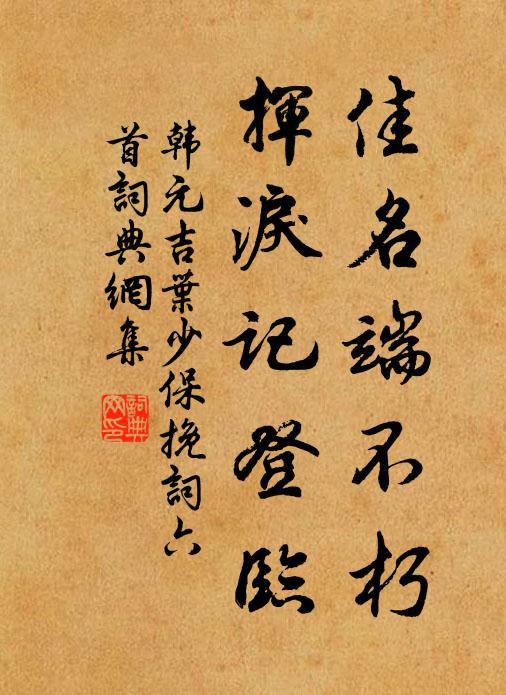 佳名端不朽
揮淚記登臨
韩元吉葉少保挽詞六
首詞典網集
詞典
网印